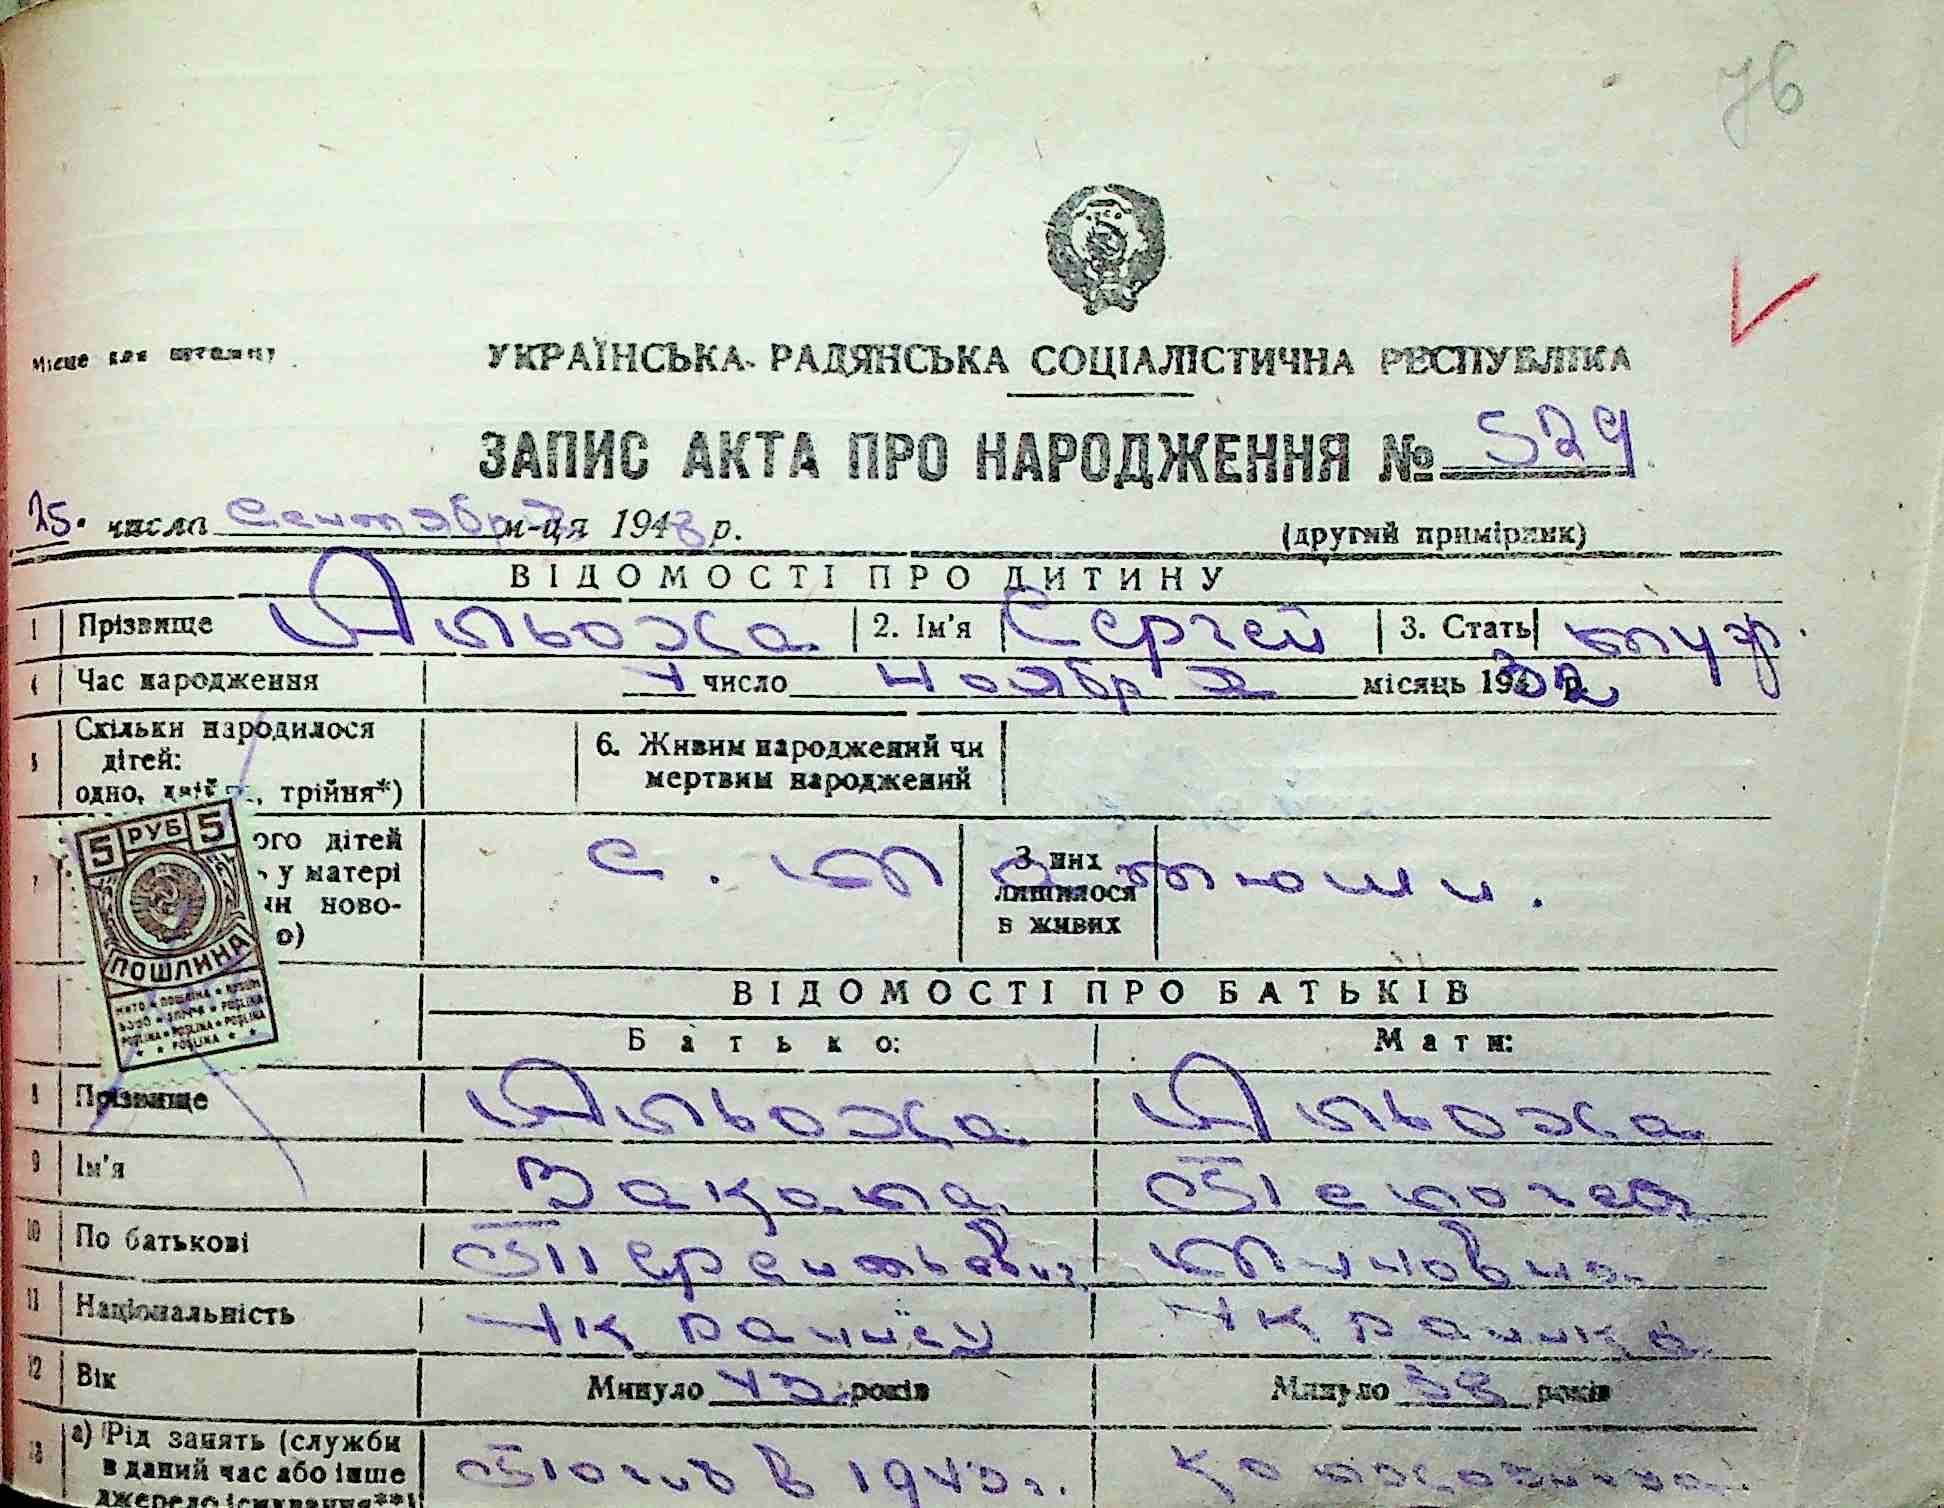 76
Місце для штампу
УКРАЇНСЬКА РАДЯНСЬКА СОЦІАЛІСТИЧНА РЕСПУБЛІКА
ЗАПИС АКТА ПРО НАРОДЖЕННЯ № 529
25. числа Сентября м-ця 1948 р. (другий примірник)
ВІДОМОСТІ ПРО ДИТИНУ
1 Прізвище Альоха 2. Ім'я Сергей 3. Стать муж.
4 Час народження 4 число Ноября місяць 1932 р.
5 Скільки народилося дітей: одно, двійня, трійня*)
6. Живим народжений чи мертвим народжений
7 ого дітей у матері ново- о)
З них лишилося в живих
с. Матюши.
5 РУБ 5
ПОШЛИНА
ВІДОМОСТІ ПРО БАТЬКІВ
Батько: Мати:
8 Прізвище Альоха Альоха
9 Ім'я Пелагея
10 По батькові Терентьевич Миновна
11 Національність Українец Украинка
12 Вік Минуло 43 років Минуло 38 років
13 а) Рід занять (служби в даний час або інше джерело існування**) Погиб в 1943г. колхозница